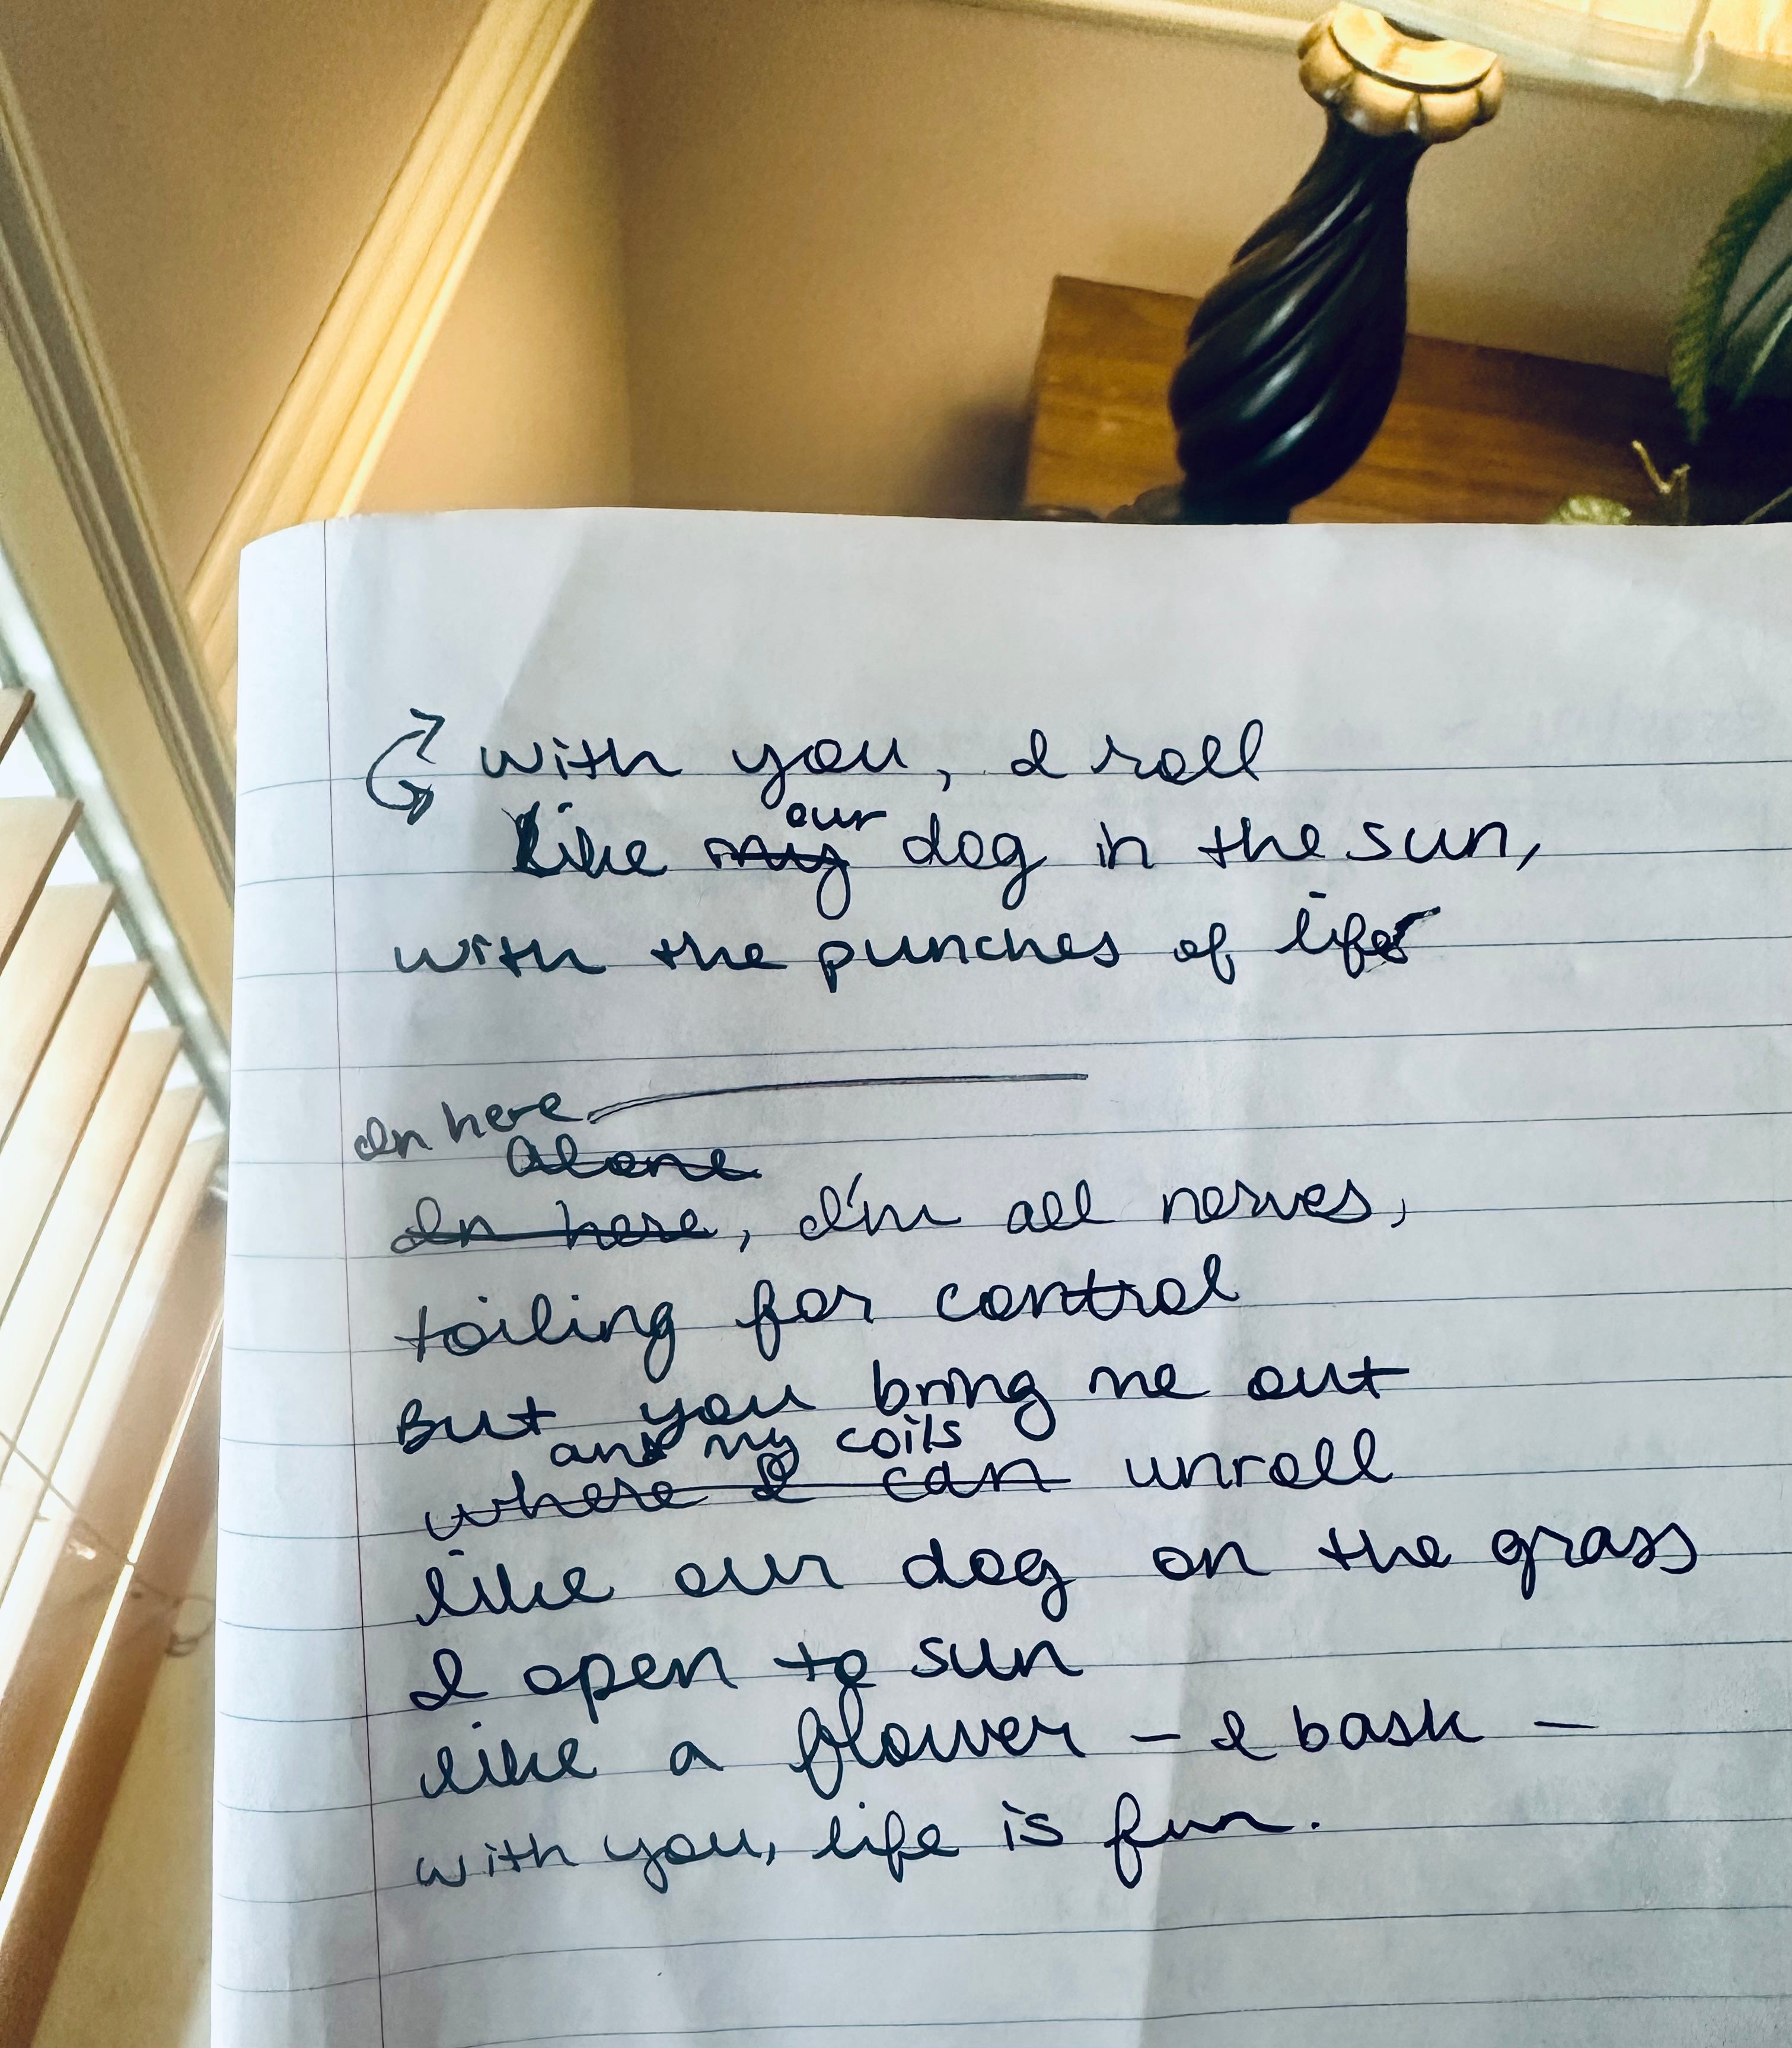 with you, I roll
our
Like my dog in the sun,
with the punches of life
In here
Alone
In here, I'm all nerves,
toiling for control
But you bring me out
and my coils
where I can unroll
like our dog on the grass
I open to sun
like a flower – I bask –
with you, life is fun.